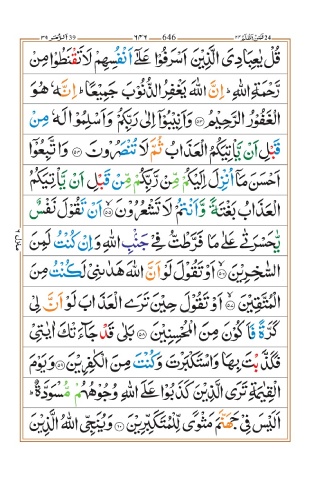 الزمر ٣٩ ٦٤٦ 646 فمن اظلم ٢٤
قُلْ يٰعِبَادِىَ الَّذِيْنَ اَسْرَفُوْا عَلٰٓى اَنْفُسِهِمْ لَا تَقْنَطُوْا مِنْ
رَّحْمَةِ اللّٰهِ ؕ اِنَّ اللّٰهَ يَغْفِرُ الذُّنُوْبَ جَمِيْعًا ؕ اِنَّهٗ هُوَ
الْغَفُوْرُ الرَّحِيْمُ ﴿۵۳﴾ وَاَنِيْبُوْۤا اِلٰى رَبِّكُمْ وَاَسْلِمُوْا لَهٗ مِنْ
قَبْلِ اَنْ يَّاْتِيَكُمُ الْعَذَابُ ثُمَّ لَا تُنْصَرُوْنَ ﴿۵۴﴾ وَاتَّبِعُوْۤا
اَحْسَنَ مَاۤ اُنْزِلَ اِلَيْكُمْ مِّنْ رَّبِّكُمْ مِّنْ قَبْلِ اَنْ يَّاْتِيَكُمُ
الْعَذَابُ بَغْتَةً وَّاَنْتُمْ لَا تَشْعُرُوْنَ ﴿۵۵﴾ اَنْ تَقُوْلَ نَفْسٌ
يّٰحَسْرَتٰى عَلٰى مَا فَرَّطْتُّ فِىْ جَنْۢبِ اللّٰهِ وَاِنْ كُنْتُ لَمِنَ
السّٰخِرِيْنَ ﴿۵۶﴾ اَوْ تَقُوْلَ لَوْ اَنَّ اللّٰهَ هَدٰٮنِىْ لَكُنْتُ مِنَ
الْمُتَّقِيْنَ ﴿۵۷﴾ اَوْ تَقُوْلَ حِيْنَ تَرَى الْعَذَابَ لَوْ اَنَّ لِىْ
كَرَّةً فَاَكُوْنَ مِنَ الْمُحْسِنِيْنَ ﴿۵۸﴾ بَلٰى قَدْ جَآءَتْكَ اٰيٰتِىْ
فَكَذَّبْتَ بِهَا وَاسْتَكْبَرْتَ وَكُنْتَ مِنَ الْكٰفِرِيْنَ ﴿۵۹﴾ وَيَوْمَ
الْقِيٰمَةِ تَرَى الَّذِيْنَ كَذَبُوْا عَلَى اللّٰهِ وُجُوْهُهُمْ مُّسْوَدَّةٌ ؕ
اَلَيْسَ فِىْ جَهَنَّمَ مَثْوًى لِّلْمُتَكَبِّرِيْنَ ﴿۶۰﴾ وَيُنَجِّى اللّٰهُ الَّذِيْنَ